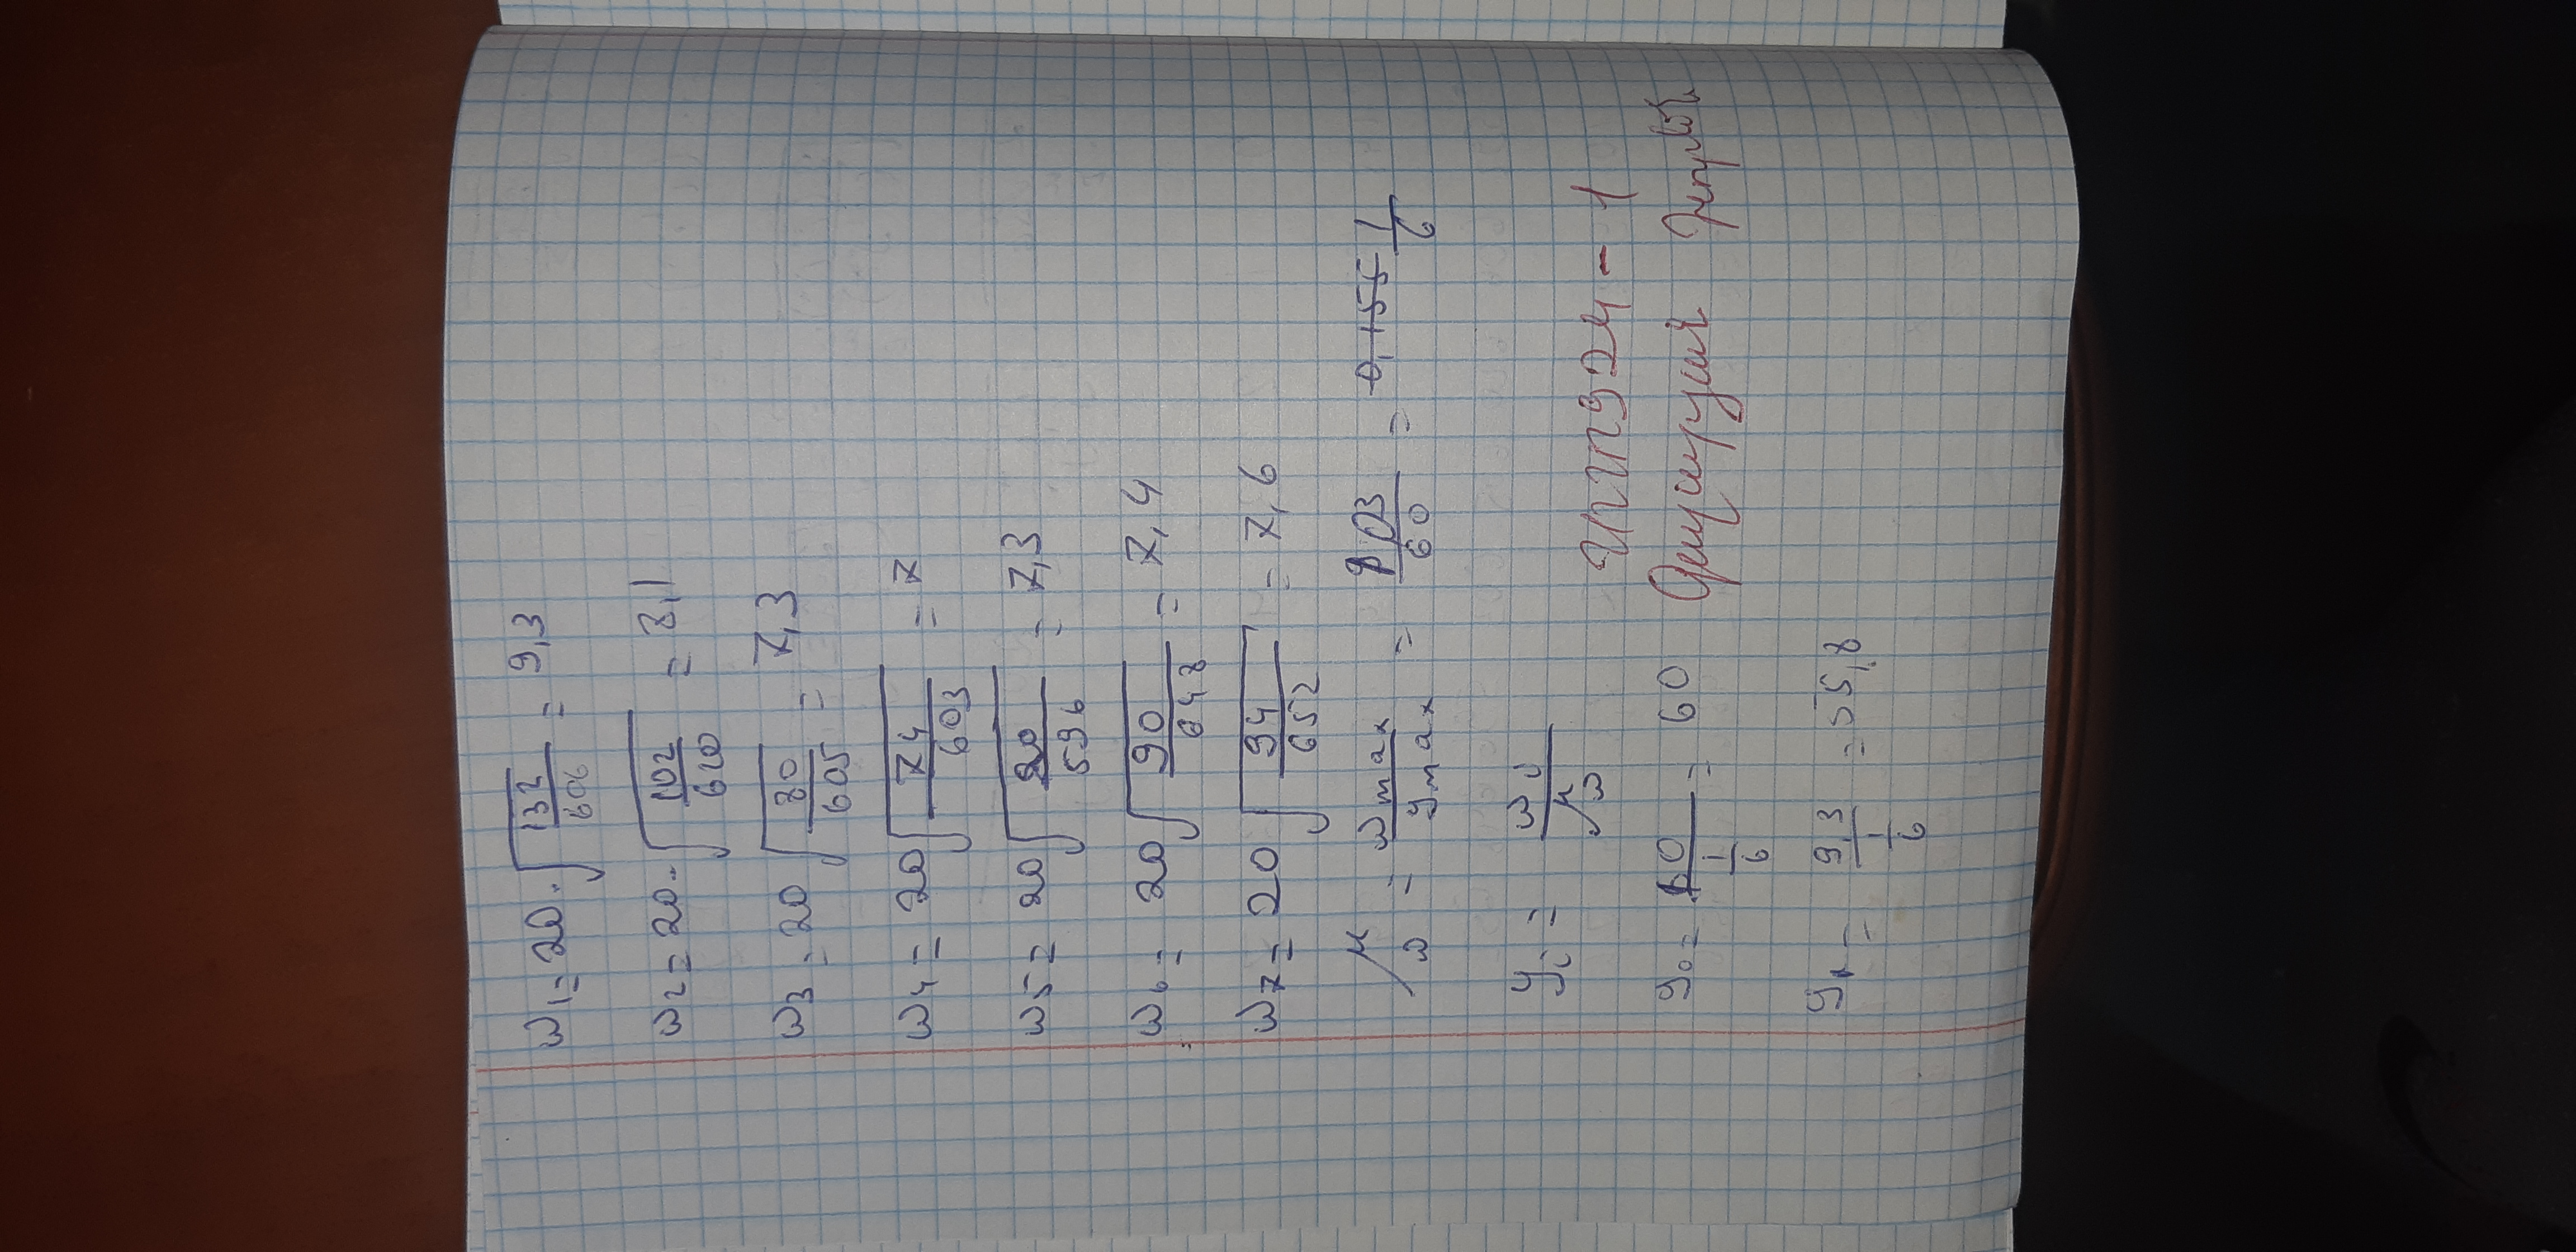 ω₁ = 20 · √(132/606) = 9,3
ω₂ = 20 · √(102/620) = 8,1
ω₃ = 20 √(80/605) = 7,3
ω₄ = 20 √(74/603) = 7
ω₅ = 20 √(80/596) = 7,3
ω₆ = 20 √(90/648) = 7,4
ω₇ = 20 √(94/652) = 7,6
μ_ω = ω_max/y_max = /60 = 0,155 1/6
y_i = ω_i/μ_ω
y₀ = 10/(1/6) = 60
924-1
y₁ = 9,3/(1/6) = 55,8